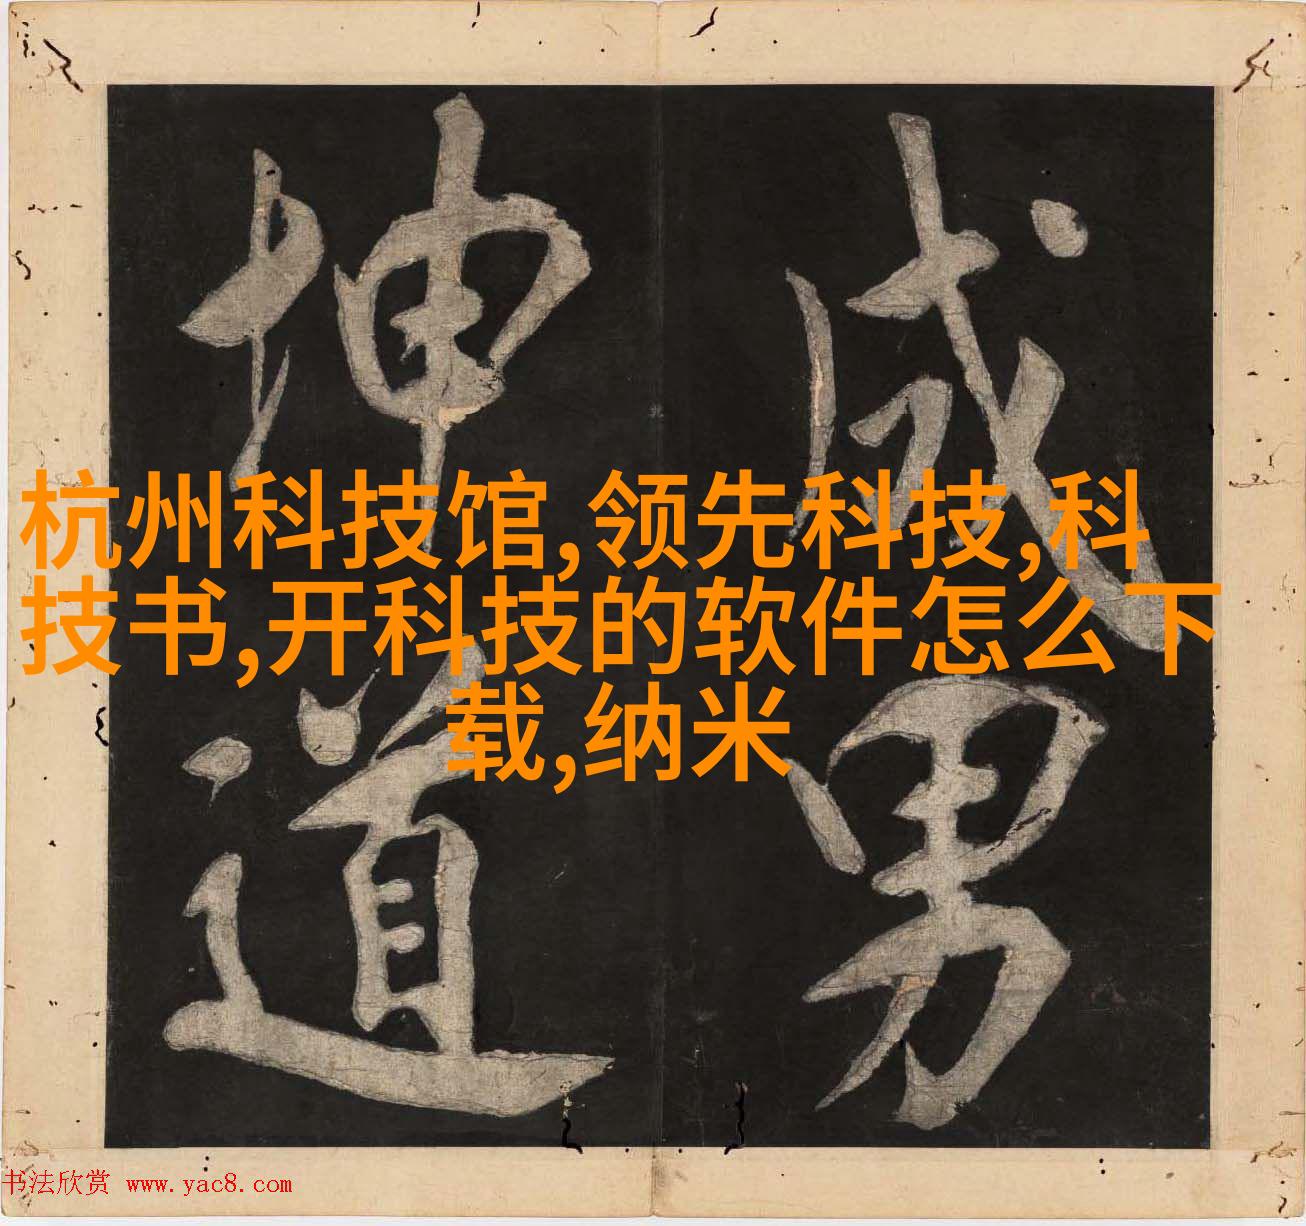 成男
坤道
杭州科技馆,领先科技,科
技书,开科技的软件怎么下
载,纳米
书法欣赏 www.yac8.com